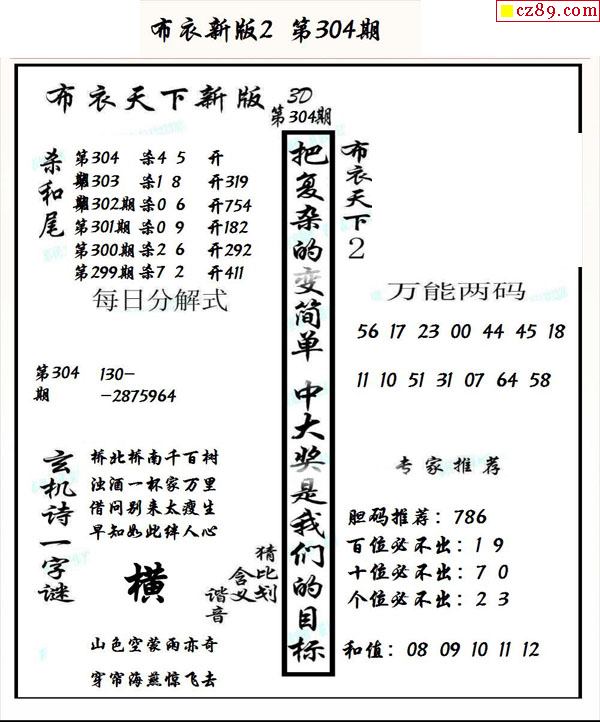 cz89.com
布衣新版2 第304期
布衣天下新版
3D
第304期
杀和尾
第304 杀4 5 开
期303 杀1 8 开319
期302期杀0 6 开754
第301期杀0 9 开182
第300期杀2 6 开292
第299期杀7 2 开411
每日分解式
第304期
130-
-2875964
玄机诗一字谜
桥北桥南千百树
浊酒一杯家万里
借问别来太瘦生
早知如此绊人心
横
猜比划
含义
谐音
山色空蒙雨亦奇
穿帘海燕惊飞去
把复杂的变简单 中大奖是我们的目标
布衣天下2
万能两码
56 17 23 00 44 45 18
11 10 51 31 07 64 58
专家推荐
胆码推荐：786
百位必不出：1 9
十位必不出：7 0
个位必不出：2 3
和值：08 09 10 11 12